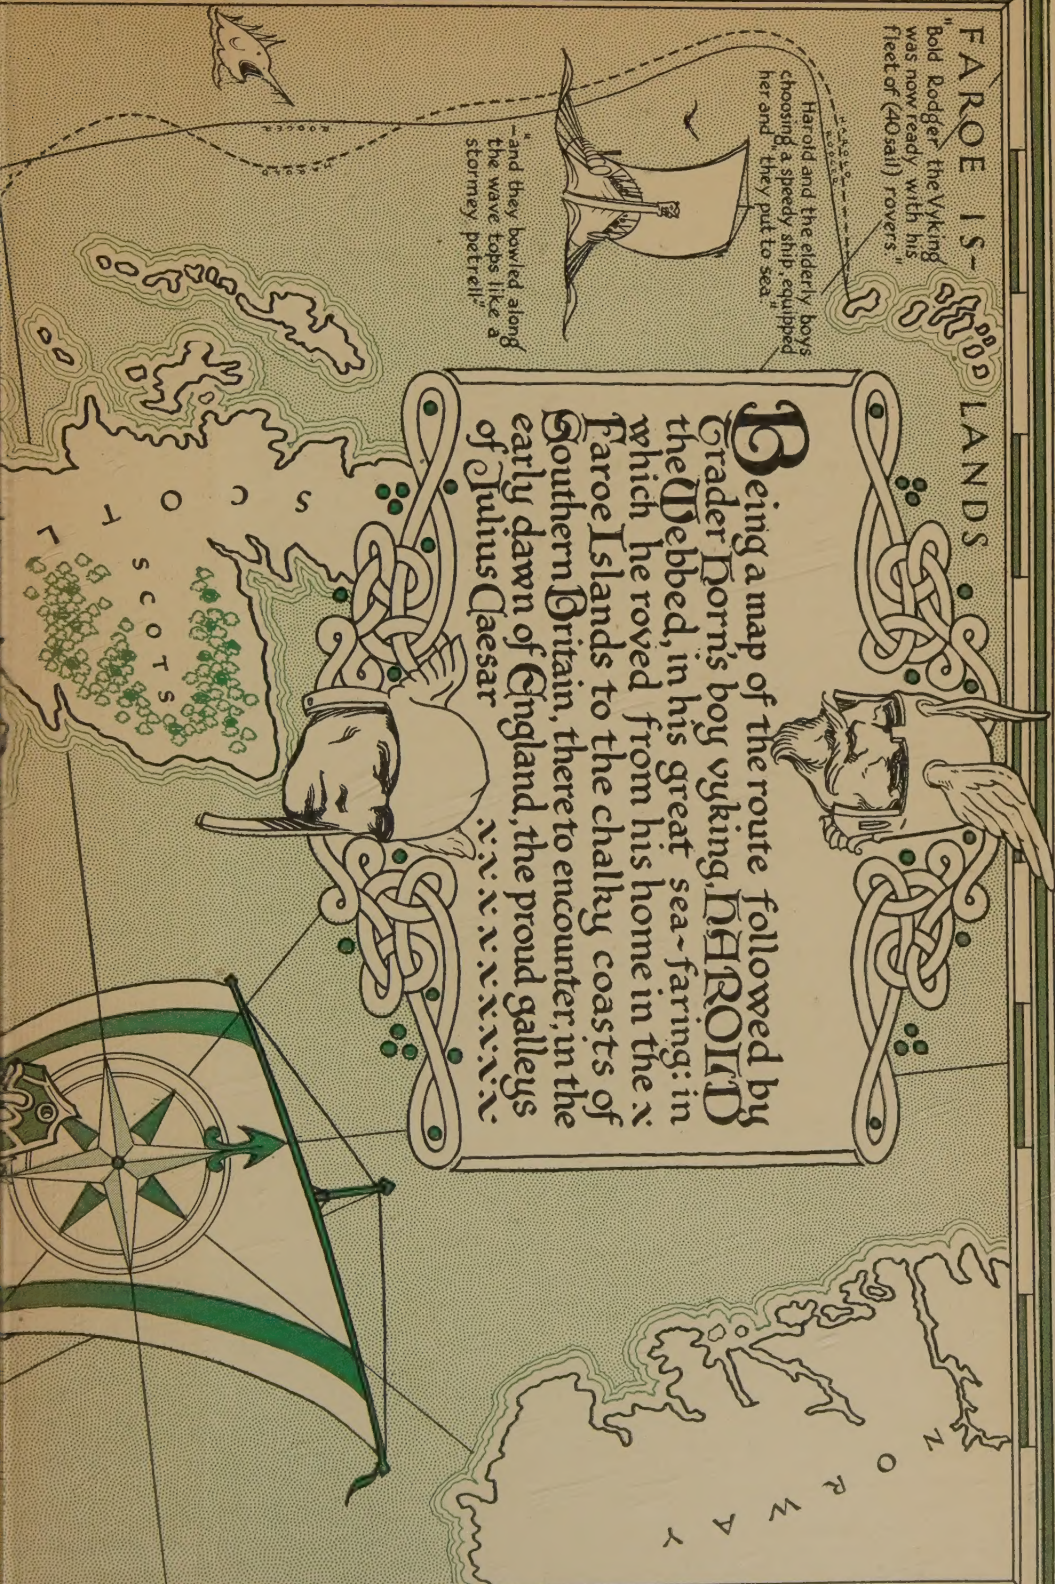 FAROE IS-LANDS
"Bold Rodger the Vyking
was now ready with his
fleet of (40 sail) rovers."
HAROLD
RODGER
Harold and the elderly boys
choosing a speedy ship, equipped
her and "they put to sea"
"—and they bowled along
the wave tops like a
stormey petrell"
RODGER
Being a map of the route followed by
Trader Horn's boy vyking, HAROLD
the Webbed, in his great sea-faring: in
which he roved from his home in the x
Faroe Islands to the chalky coasts of
Southern Britain, there to encounter, in the
early dawn of England, the proud galleys
of Julius Caesar x x x x x x x x x x
NORWAY
SCOTL
SCOTS